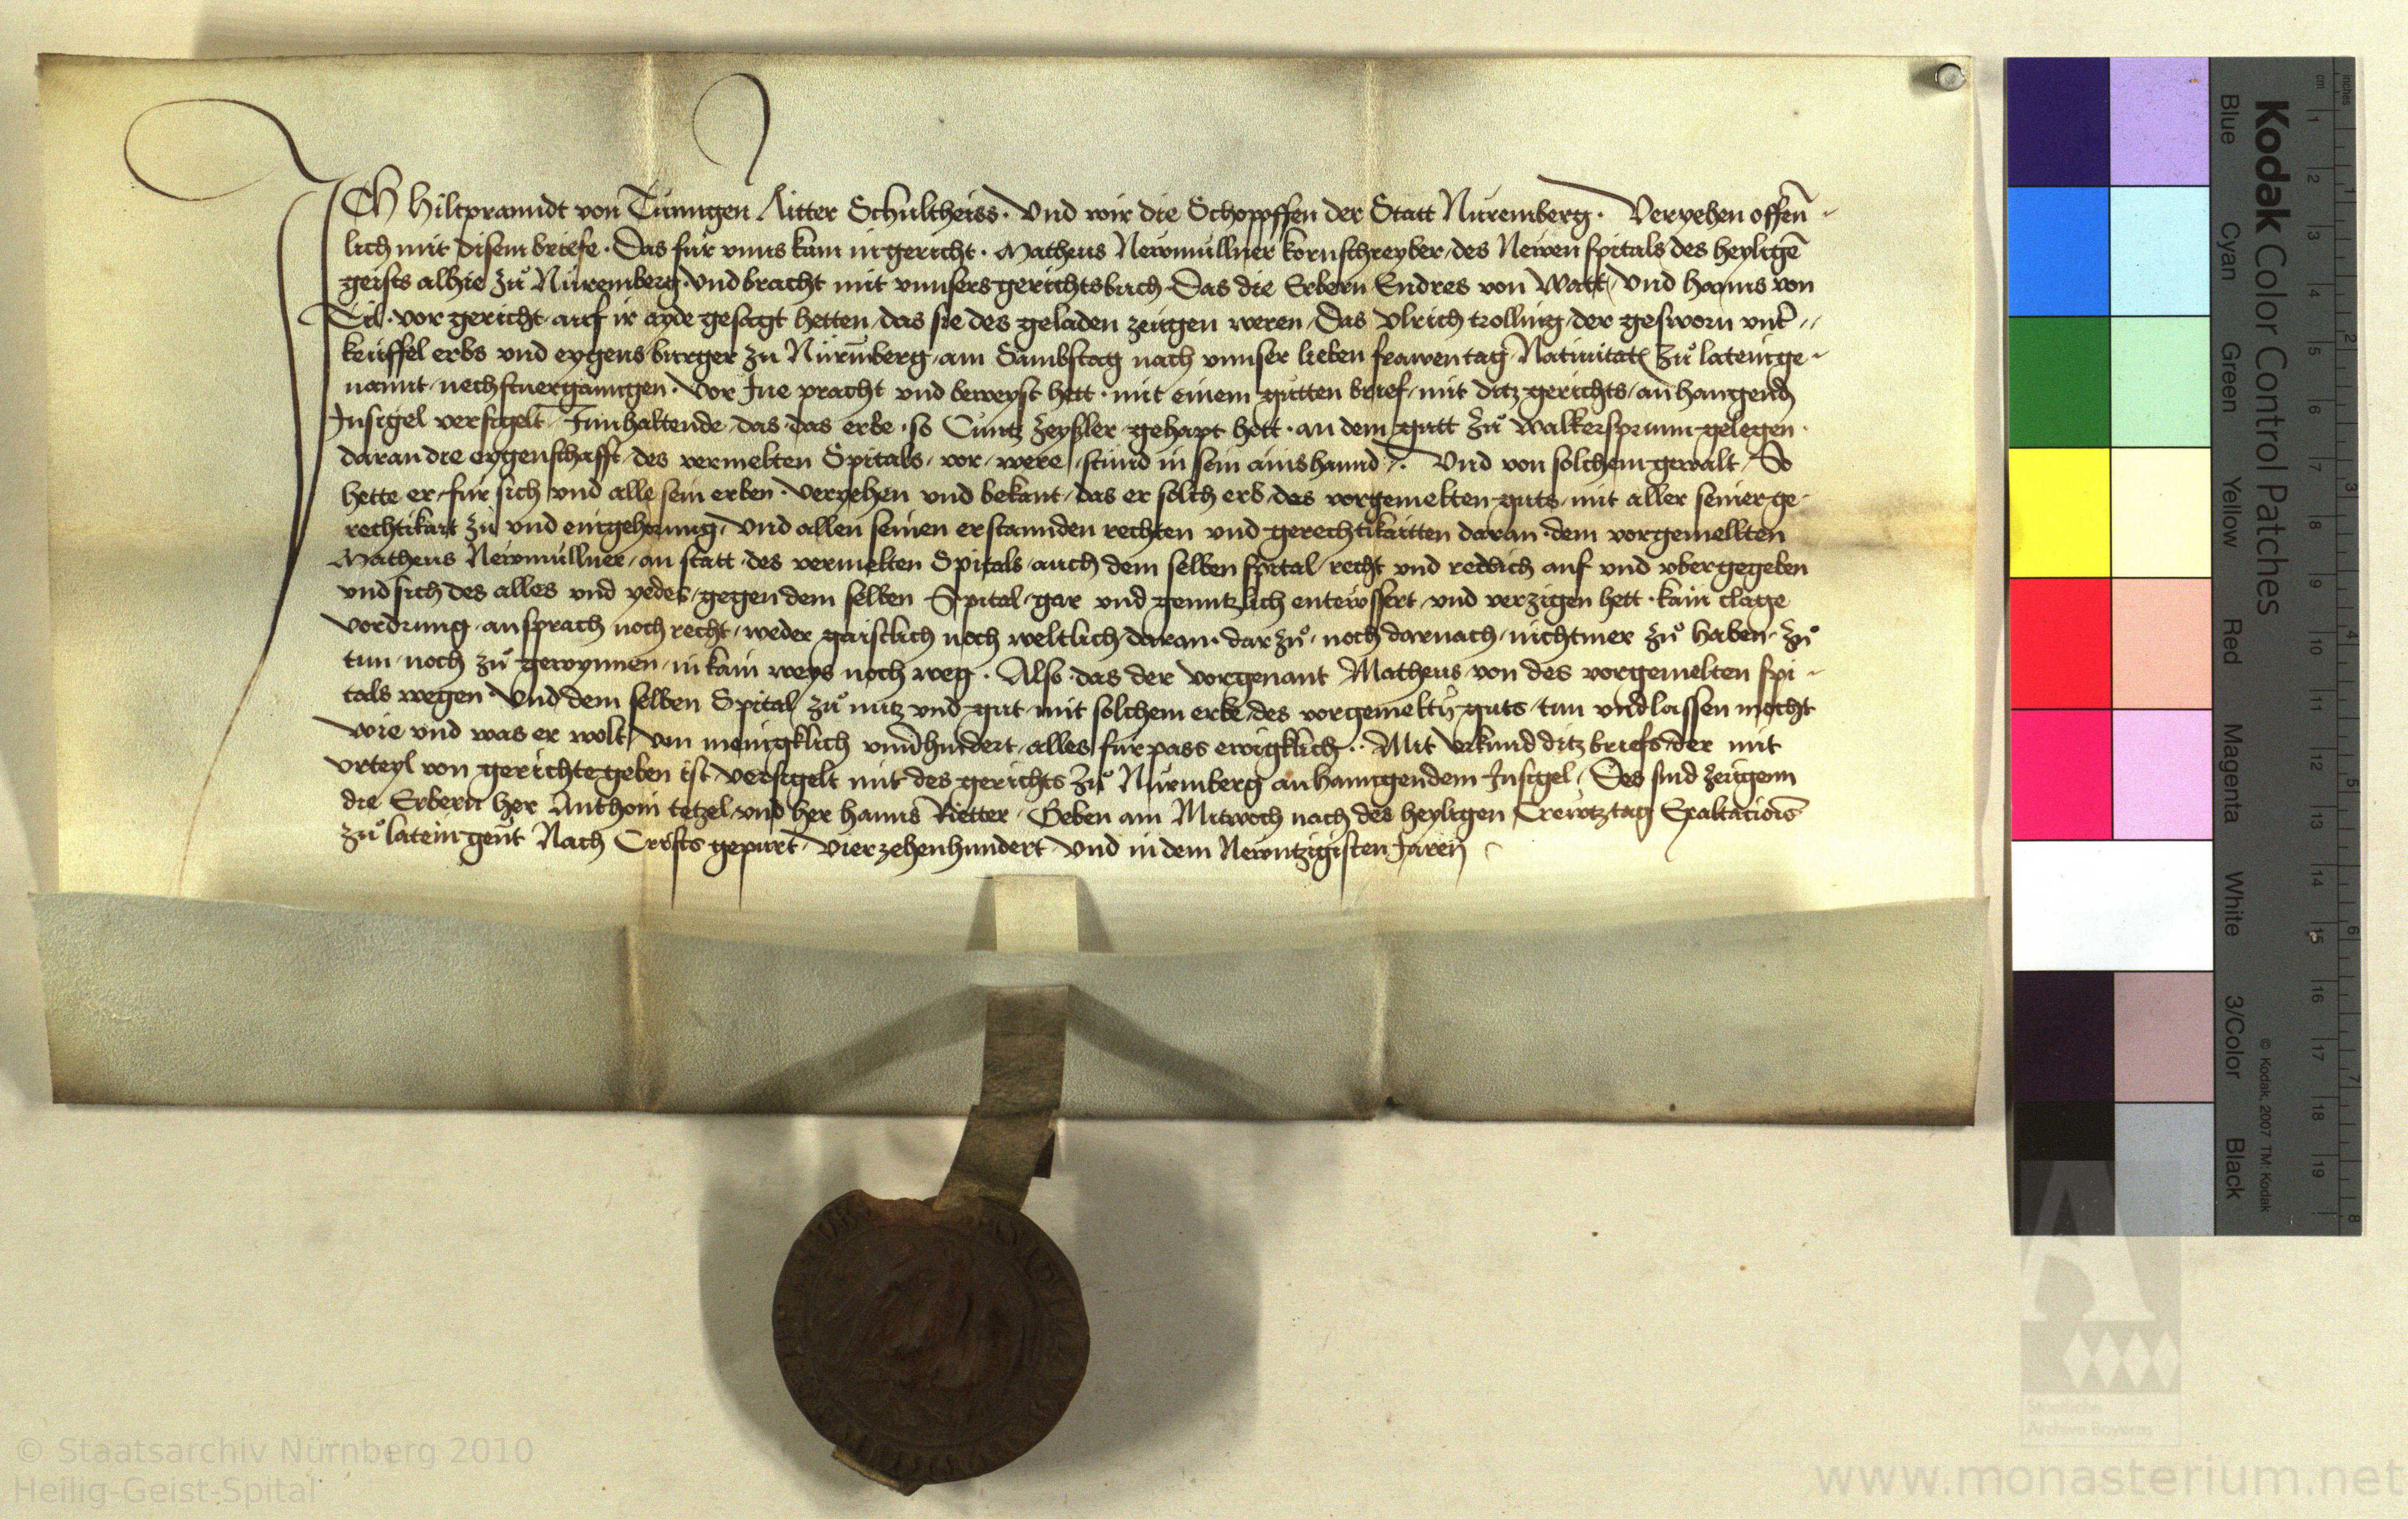 ICH Hiltpranndt von Tünngen Ritter Schultheiss · Und wir die Schoppffen der Statt Nüremberg · Veryehen offen̄
lich mit disem briefe · Das für unns kam in gericht · Matheus Newmüllner kornschreyber des Newen spitals des heyligē
geists alhie zů Nüremberg · und bracht mit unnsers gerichtsbuch Das die Erbern Endres von Watt / und Hanns von
Til · vor gericht auf ir ayde gesagt hetten das sie des geladen zeügen weren / Das Ulrich trolling der gesworn unt̄
keüffel erbs und eygens burger zu Nürmberg / am Sambstag nach unnser lieben frawen tag Natiuitatꝭ zů latein ge
nannt nechstuergangen · Vor Jne pracht und beweyst hett · mit einem gütten brief / mit ditz gerichts / anhangendē
Jnsigel versigelt̄ Jnnhaltende das das erbe so Cüntz Zeyßler gehapt hett · an dem gütt zů Walkersprunn gelegen ·
daran die eygenschafft des vermelten Spitals vor were / stünd in sein ains hannd / · Und von solchem gewalt So
hette er für sich und alle sein erben · veryehen und bekant / das er solch erb des vorgemelten guts mit aller seiner ge
rechtikait zů und eingehorung / und allen seinen erstannden rechten und gerechtikaitten daran · dem vorgemellten
Matheus Newmüllner / an statt des vermelten Spitals auch dem selben spital recht und redlich auf und ubergegeben
und sich des alles und yedes gegen dem selben Spital gar und genntzlich entewssert und verzigen hett · kain clage
vordrung ansprach noch recht / weder gaistlich noch weltlich daran · darzů · noch darnach / nichtmer zů haben · zů
tun noch zů gewynnen in kain weys noch weg · Also das der vorgenant Matheus von des vorgemelten spi
tals wegen · Und dem selben Spital zů nutz und gut mit solchem erbe des vorgemeltn̄ guts / tun und lassen mocht
wie und was er wolt / von menigklich unuerhindert / alles fürpass ewigklich · Mit urkund ditz briefs der mit
urteyl von gerichte geben ist · versigelt mit des gerichts zů Nürmberg anhanngendem Jnsigel / Des sind zeügenn
die Erbern her Anthoni tetzel und her Hanns Rietter · Geben am Mitwoch nach des heyligen Crewtztag Exaltacionis
zů latein gen̄t Nach Crists gepurt · Vierzehenhundert und in dem Newntzigisten Jaren̄
Kodak Color Control Patches
Blue
Cyan
Green
Yellow
Red
Magenta
White
3/Color
Black
© Kodak, 2007 TM: Kodak
cm 1 2 3 4 5 6 7 8 9 10 11 12 13 14 15 16 17 18 19
inches 1 2 3 4 5 6 7 8
© Staatsarchiv Nürnberg 2010
Heilig-Geist-Spital
Staatliche
Archive Bayerns
www.monasterium.net